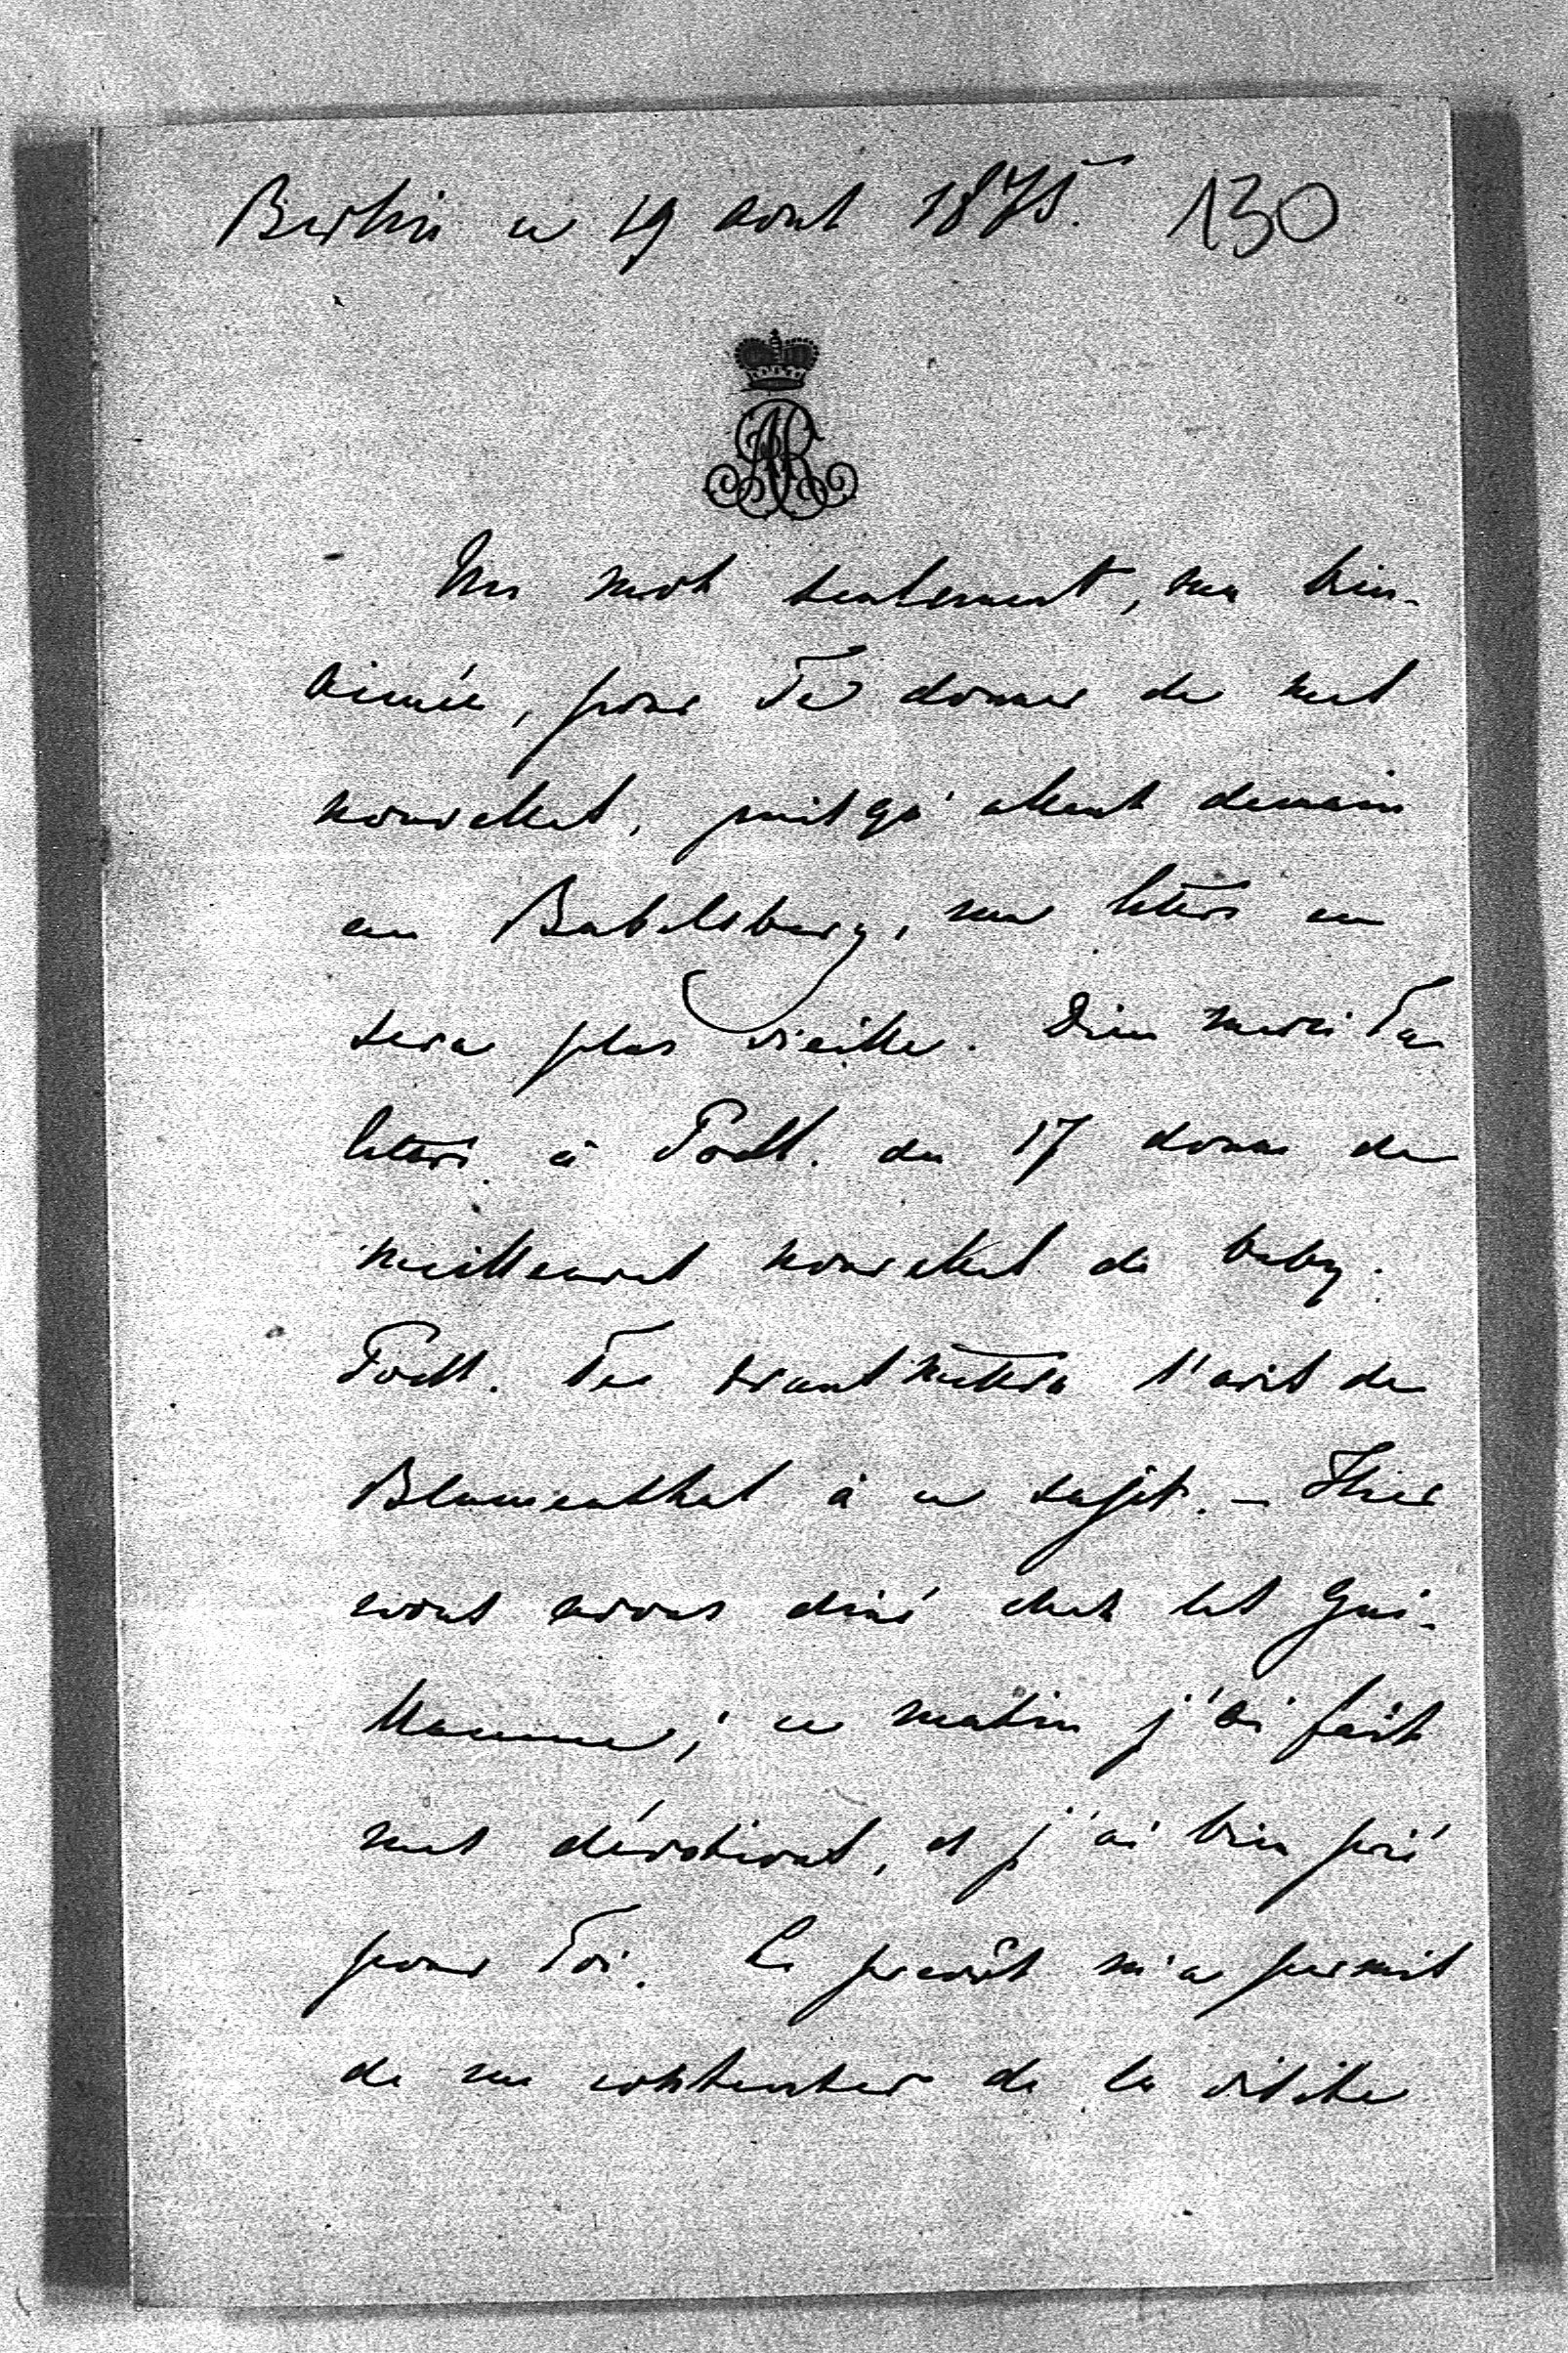 Berlin ce 19 aout 1875. 130
AR
Un mot seulement, ma bien-
aimée, pour Te donner de mes
nouvelles, puisqu'allant demain
au Babelsberg, ma lettre en
sera plus vieille. Dieu merci Ta
lettre à Podb. du 17 donne de
meilleures nouvelles de baby.
Te transmettra l'avis de
Blumenthal à ce sujet. – Hier
avons nous diné chez les Gui-
llaume; ce matin j'ai fait
mes dévotions, et j'ai bien prié
pour Toi. Le m'a permis
de me contenter de la visite